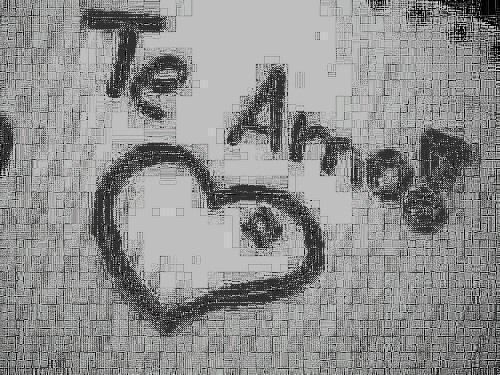 Te
Amo